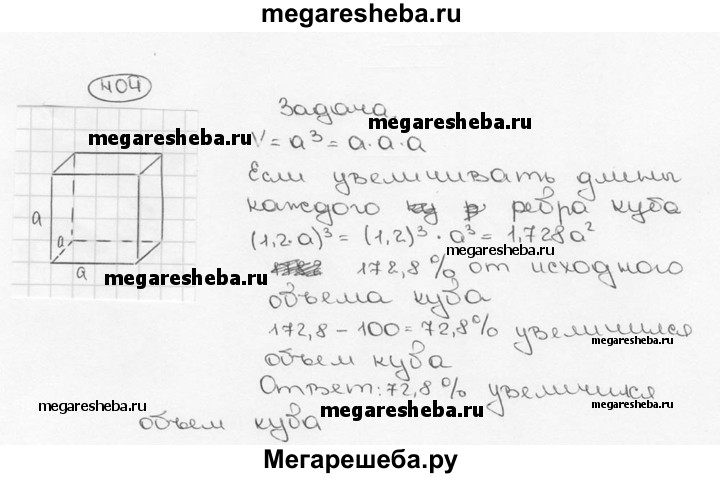 megaresheba.ru
404
Задача
megaresheba.ru
megaresheba.ru
V = a³ = a·a·a
Если увеличивать длины
каждого ребра куба
a
a
a
(1,2·a)³ = (1,2)³ · a³ = 1,728a²
megaresheba.ru
megaresheba.ru
172,8% от исходного
объема куба
172,8 – 100 = 72,8% увеличился
megaresheba.ru
объем куба
Ответ: 72,8% увеличился
megaresheba.ru
megaresheba.ru
megaresheba.ru
объем куба
Мегарешеба.ру